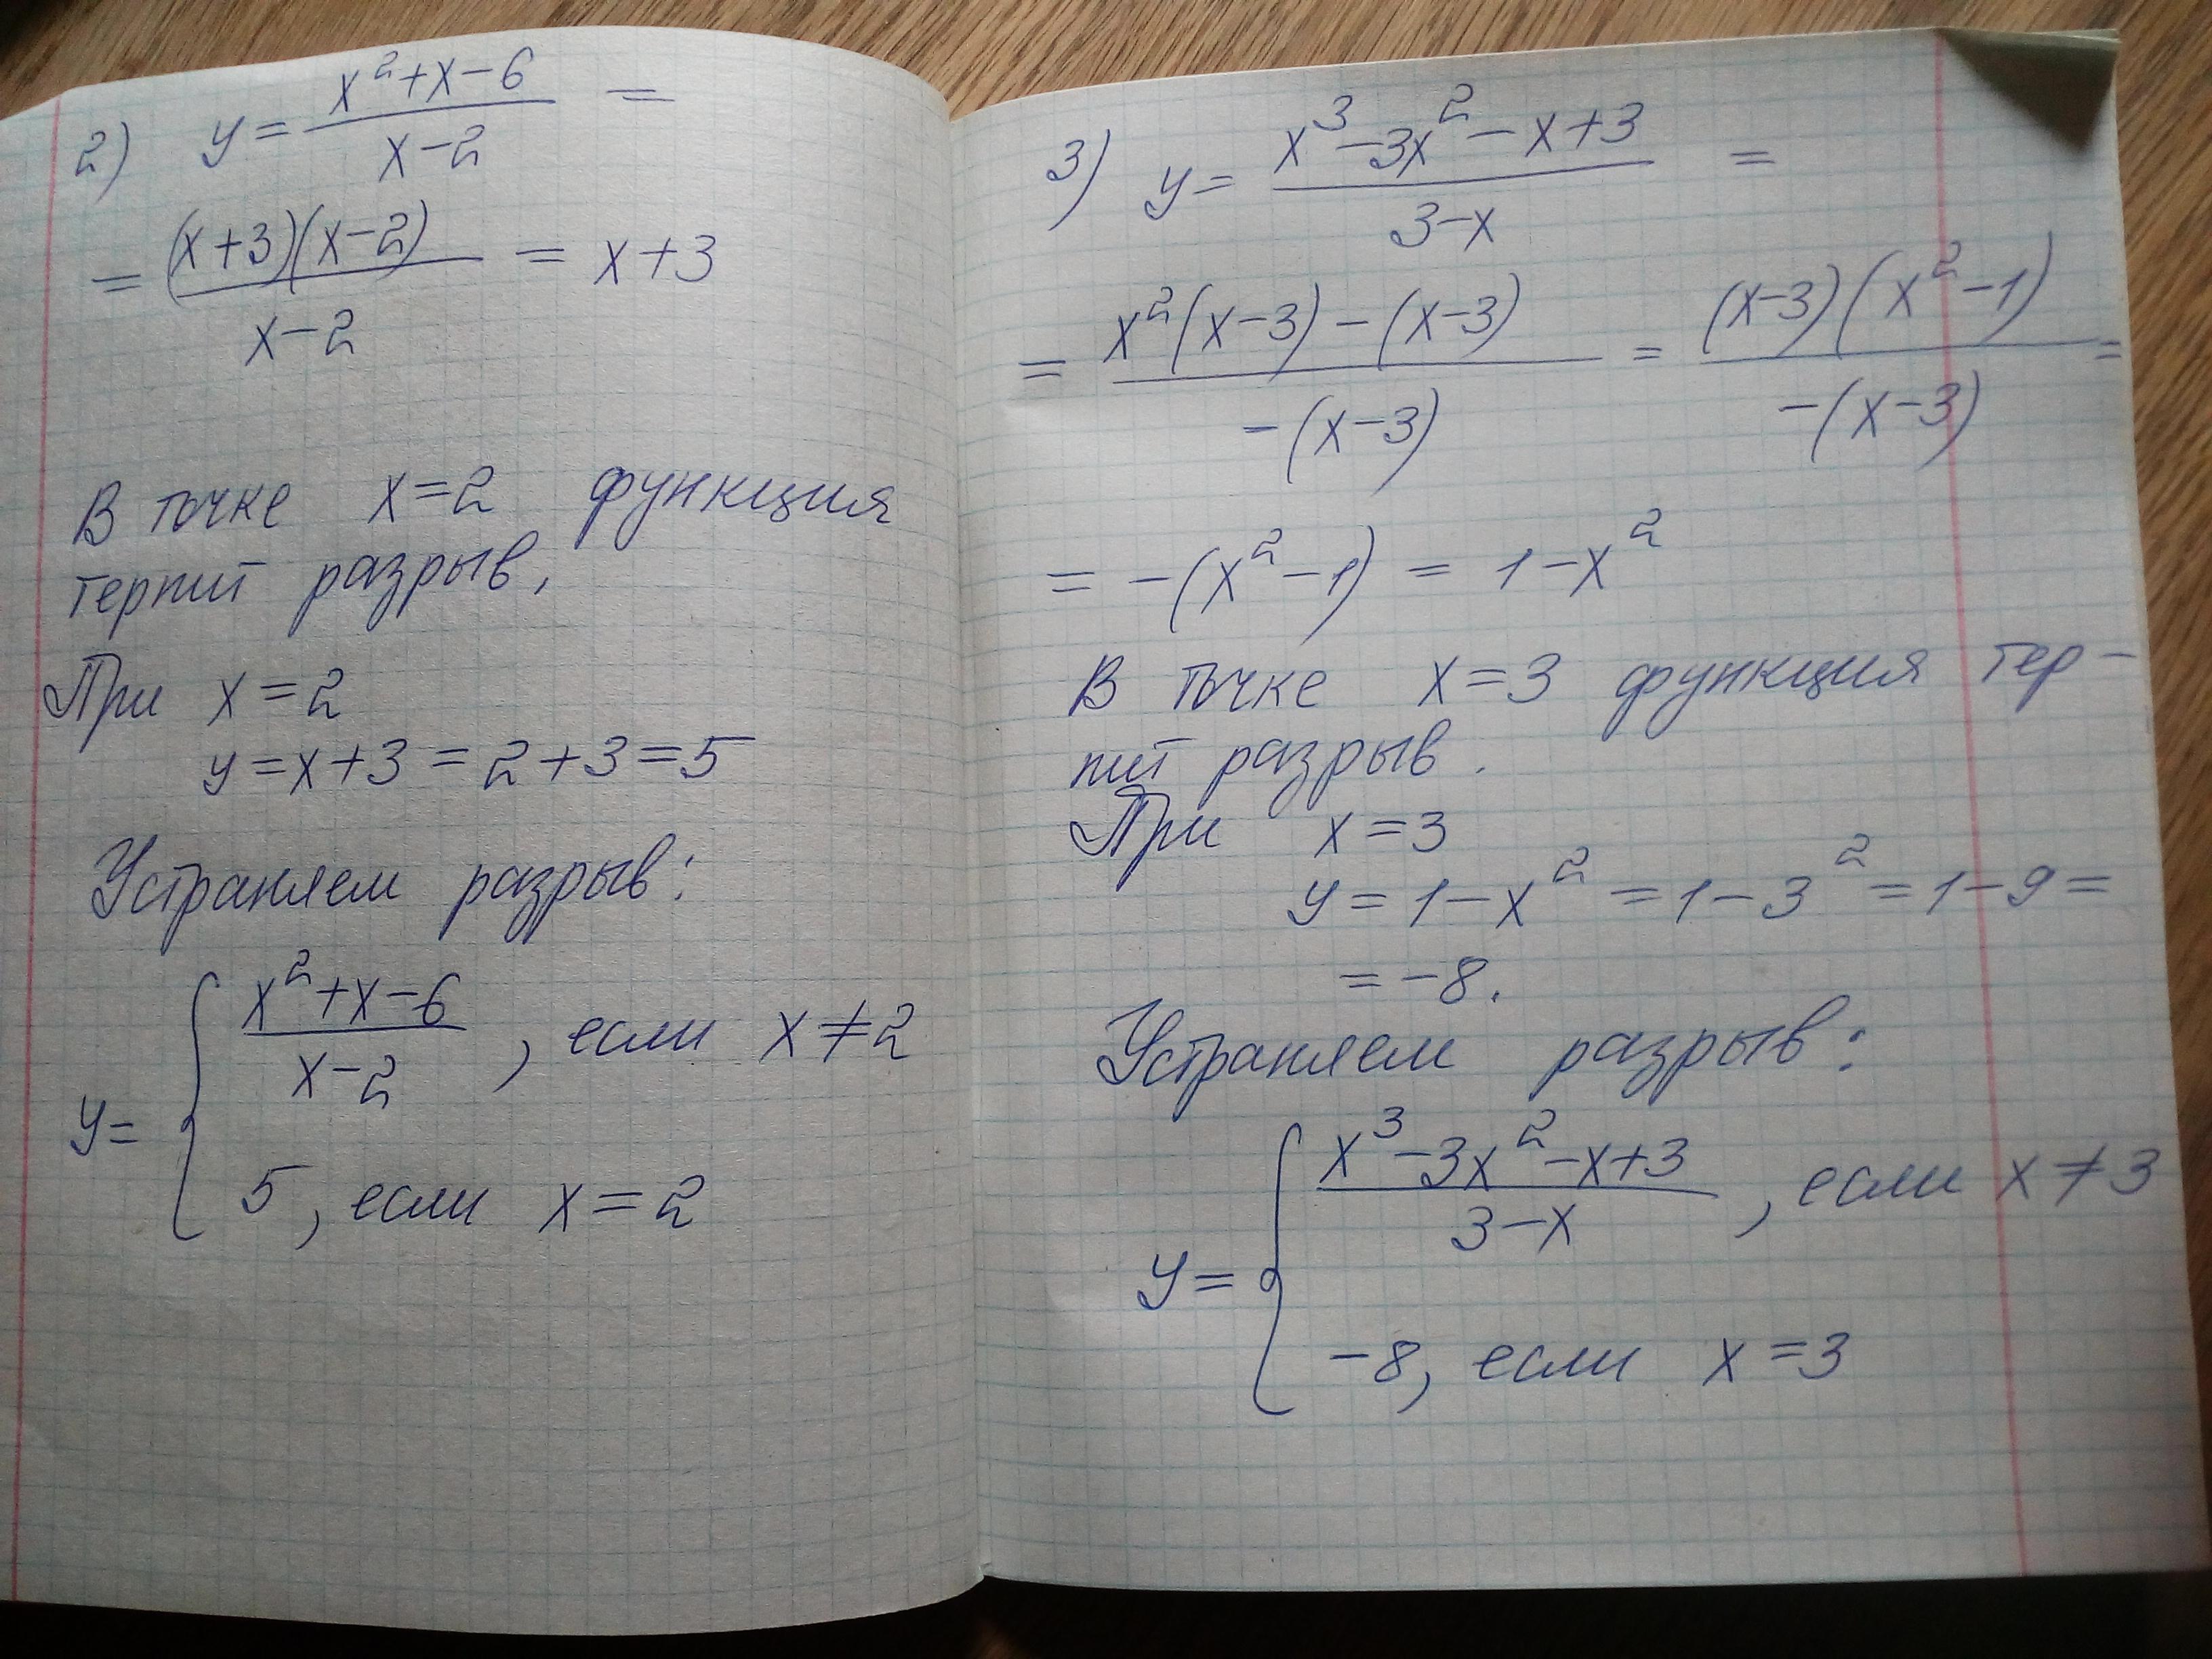 2) y = (x² + x - 6)/(x - 2) =
= ((x+3)(x-2))/(x-2) = x+3
В точке x=2 функция
терпит разрыв,
При x=2
y=x+3=2+3=5
Устраняем разрыв:
y= { (x²+x-6)/(x-2), если x≠2
5, если x=2
3) y = (x³-3x²-x+3)/(3-x) =
= (x²(x-3)-(x-3))/(-(x-3)) = ((x-3)(x²-1))/(-(x-3)) =
= -(x²-1) = 1-x²
В точке x=3 функция тер-
пит разрыв.
При x=3
y=1-x²=1-3²=1-9=
= -8.
Устраняем разрыв:
y= { (x³-3x²-x+3)/(3-x), если x≠3
-8, если x=3